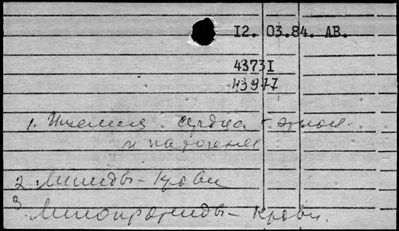 12. 03.84. АВ.
43731
43977
1. Ишемия сердца - этиол.
и патогенез
2. Липиды - крови
3. Липопротеиды - крови.